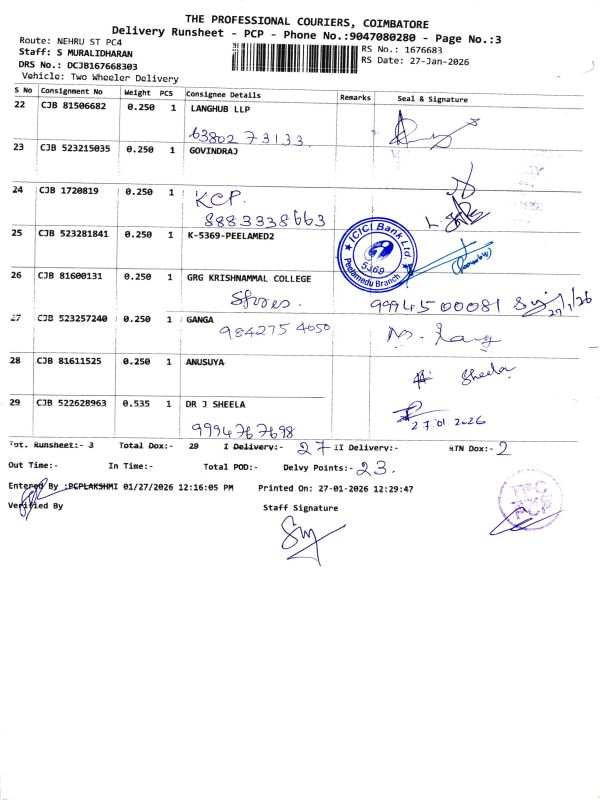 THE PROFESSIONAL COURIERS, COIMBATORE
Delivery Runsheet - PCP - Phone No.:9047080280 - Page No.:3
Route: NEHRU ST PC4
Staff: S MURALIDHARAN
DRS No.: DCJB167668303
Vehicle: Two Wheeler Delivery
RS No.: 1676683
RS Date: 27-Jan-2026
S No Consignment No Weight PCS Consignee Details Remarks Seal & Signature
22 CJB 81506682 0.250 1 LANGHUB LLP
63802 73133
23 CJB 523215035 0.250 1 GOVINDRAJ
24 CJB 1720819 0.250 1
KCP.
8883338663
25 CJB 523281841 0.250 1 K-5369-PEELAMED2
ICICI Bank Ltd.
5369
Peelamedu Branch
26 CJB 81600131 0.250 1 GRG KRISHNAMMAL COLLEGE
Stores. 9994500081 27/1/26
27 CJB 523257240 0.250 1 GANGA
9842754050
28 CJB 81611525 0.250 1 ANUSUYA
Sheela
29 CJB 522628963 0.535 1 DR J SHEELA
9994767698
27.01.2026
Tot. Runsheet:- 3 Total Dox:- 29 I Delivery:- 27 II Delivery:- RTN Dox:- 2
Out Time:- In Time:- Total POD:- Delvy Points:- 23.
Entered By :PCPLAKSHMI 01/27/2026 12:16:05 PM Printed On: 27-01-2026 12:29:47
Verified By Staff Signature